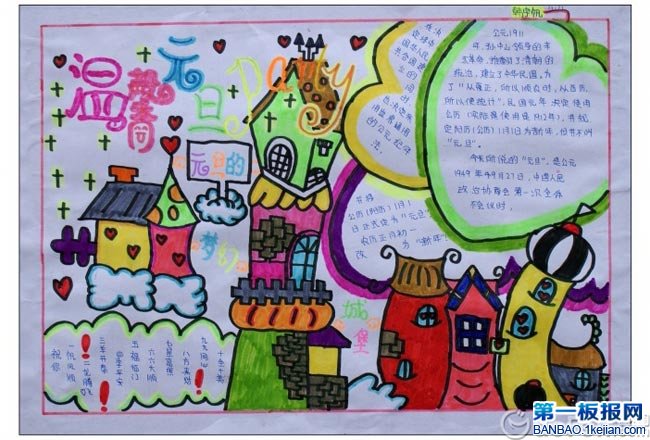 温馨
元旦
Party
元旦的
梦幻
城堡
公元1911
年,孙中山领导的辛
亥革命,推翻了清朝的
统治,建立了中华民国,为
了"从夏正,所以顺农时,从西历,
所以便统计",民国元年决定使用
公历(实际使用是1912年),并规
定阳历(公历)1月1日为"新年",但并不叫
"元旦"。
今天所说的"元旦",是公元
1949年9月27日,中国人民
政治协商会第一次全体
会议时,
共和国
立的同
时
用世界通用
的公元纪年
法。
并将
公历(阳历)1月1
日正式定为"元旦"
农历正月初一
改为"新年"
祝你
一帆风顺
二龙腾飞
三羊开泰
四季平安
五福临门
六六大顺
七星高照
八方来财
九九同心
十全十美
第一板报网
BANBAO.1kejian.com